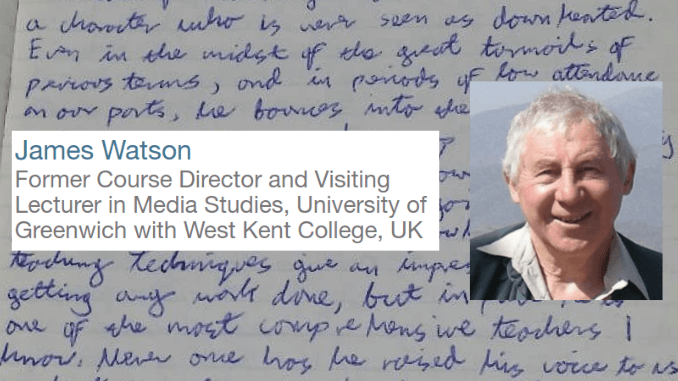 a character who is never seen as down hearted.
Even in the midst of the great turmoils of
previous terms, and in periods of low attendance
on our parts, he bounces into the
James Watson
Former Course Director and Visiting
Lecturer in Media Studies, University of
Greenwich with West Kent College, UK
teaching techniques give an impres
getting any work done, but in
one of the most comprehensive teachers I
know. Never once has he raised his voice to us